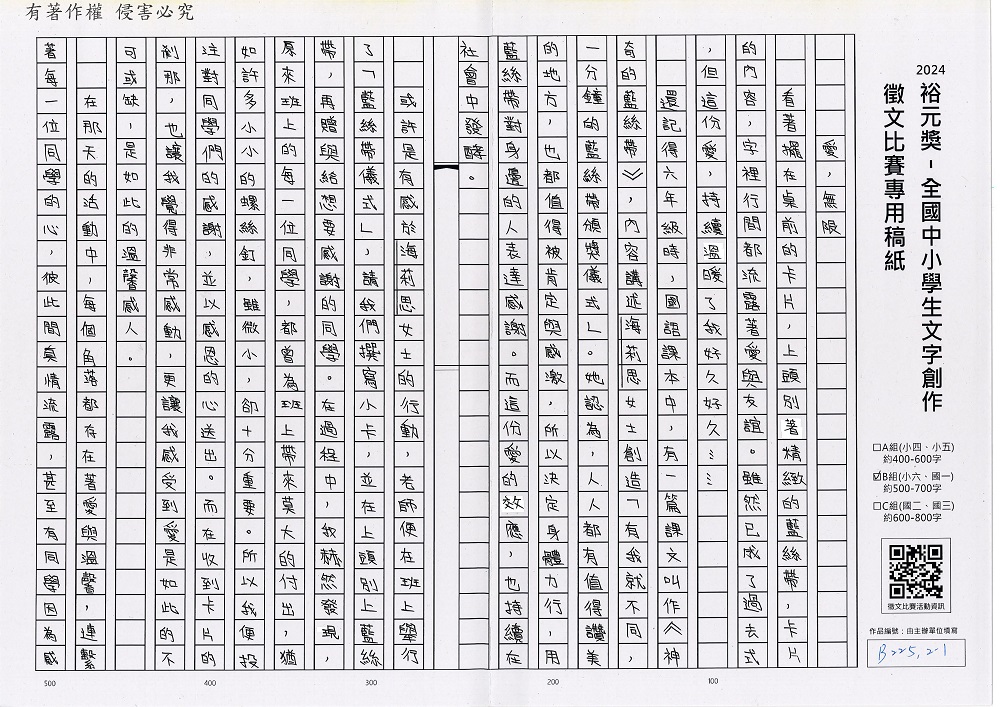 有著作權 侵害必究
2024
裕元獎-全國中小學生文字創作
徵文比賽專用稿紙
□A組(小四、小五)
約400-600字
☑B組(小六、國一)
約500-700字
□C組(國二、國三)
約600-800字
徵文比賽活動資訊
作品編號：由主辦單位填寫
B225,2-1
愛，無限
看著擺在桌前的卡片，上頭別著精緻的藍絲帶，卡片
的內容，字裡行間都流露著愛與友誼。雖然已成了過去式
，但這份愛，持續溫暖了我好久好久……
還記得六年級時，國語課本中，有一篇課文叫作《神
奇的藍絲帶》，內容講述海莉思女士創造「有我就不同，
一分鐘的藍絲帶頒獎儀式」。她認為，人人都有值得讚美
的地方，也都值得被肯定與感激，所以決定身體力行，用
藍絲帶對身邊的人表達感謝。而這份愛的效應，也持續在
社會中發酵。
或許是有感於海莉思女士的行動，老師便在班上舉行
了「藍絲帶儀式」，請我們撰寫小卡，並在上頭別上藍絲
帶，再贈與給想要感謝的同學。在過程中，我赫然發現，
原來班上的每一位同學，都曾為班上帶來莫大的付出，猶
如許多小小的螺絲釘，雖微小，卻十分重要。所以我便投
注對同學們的感謝，並以感恩的心送出。而在收到卡片的
剎那，也讓我覺得非常感動，更讓我感受到愛是如此的不
可或缺，是如此的溫馨感人。
在那天的活動中，每個角落都存在著愛與溫馨，連繫
著每一位同學的心，彼此間真情流露，甚至有同學因為感
100
200
300
400
500